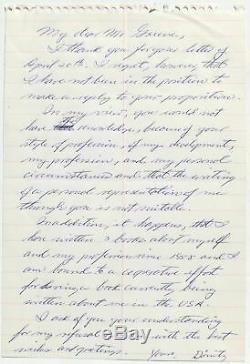 My dear Mr Greene,
I thank you for your letter of
April 20th. I regret, however, that
I have not been in the position to
make a reply to your proposition.
In my view, you would not
have the knowledge, because of your
style of profession, of my development,
my profession, and my personal
circumstances and that the writing
of a personal representation of me
through you is not suitable.
In addition, it happens, that I
have written books about myself
and my profession since 1958 and I
am bound to a cooperative effort
for doing a book currently being
written about me in the U.S.A.
I ask of you your understanding
for my refusal and with the best
wishes and greetings. Yours,